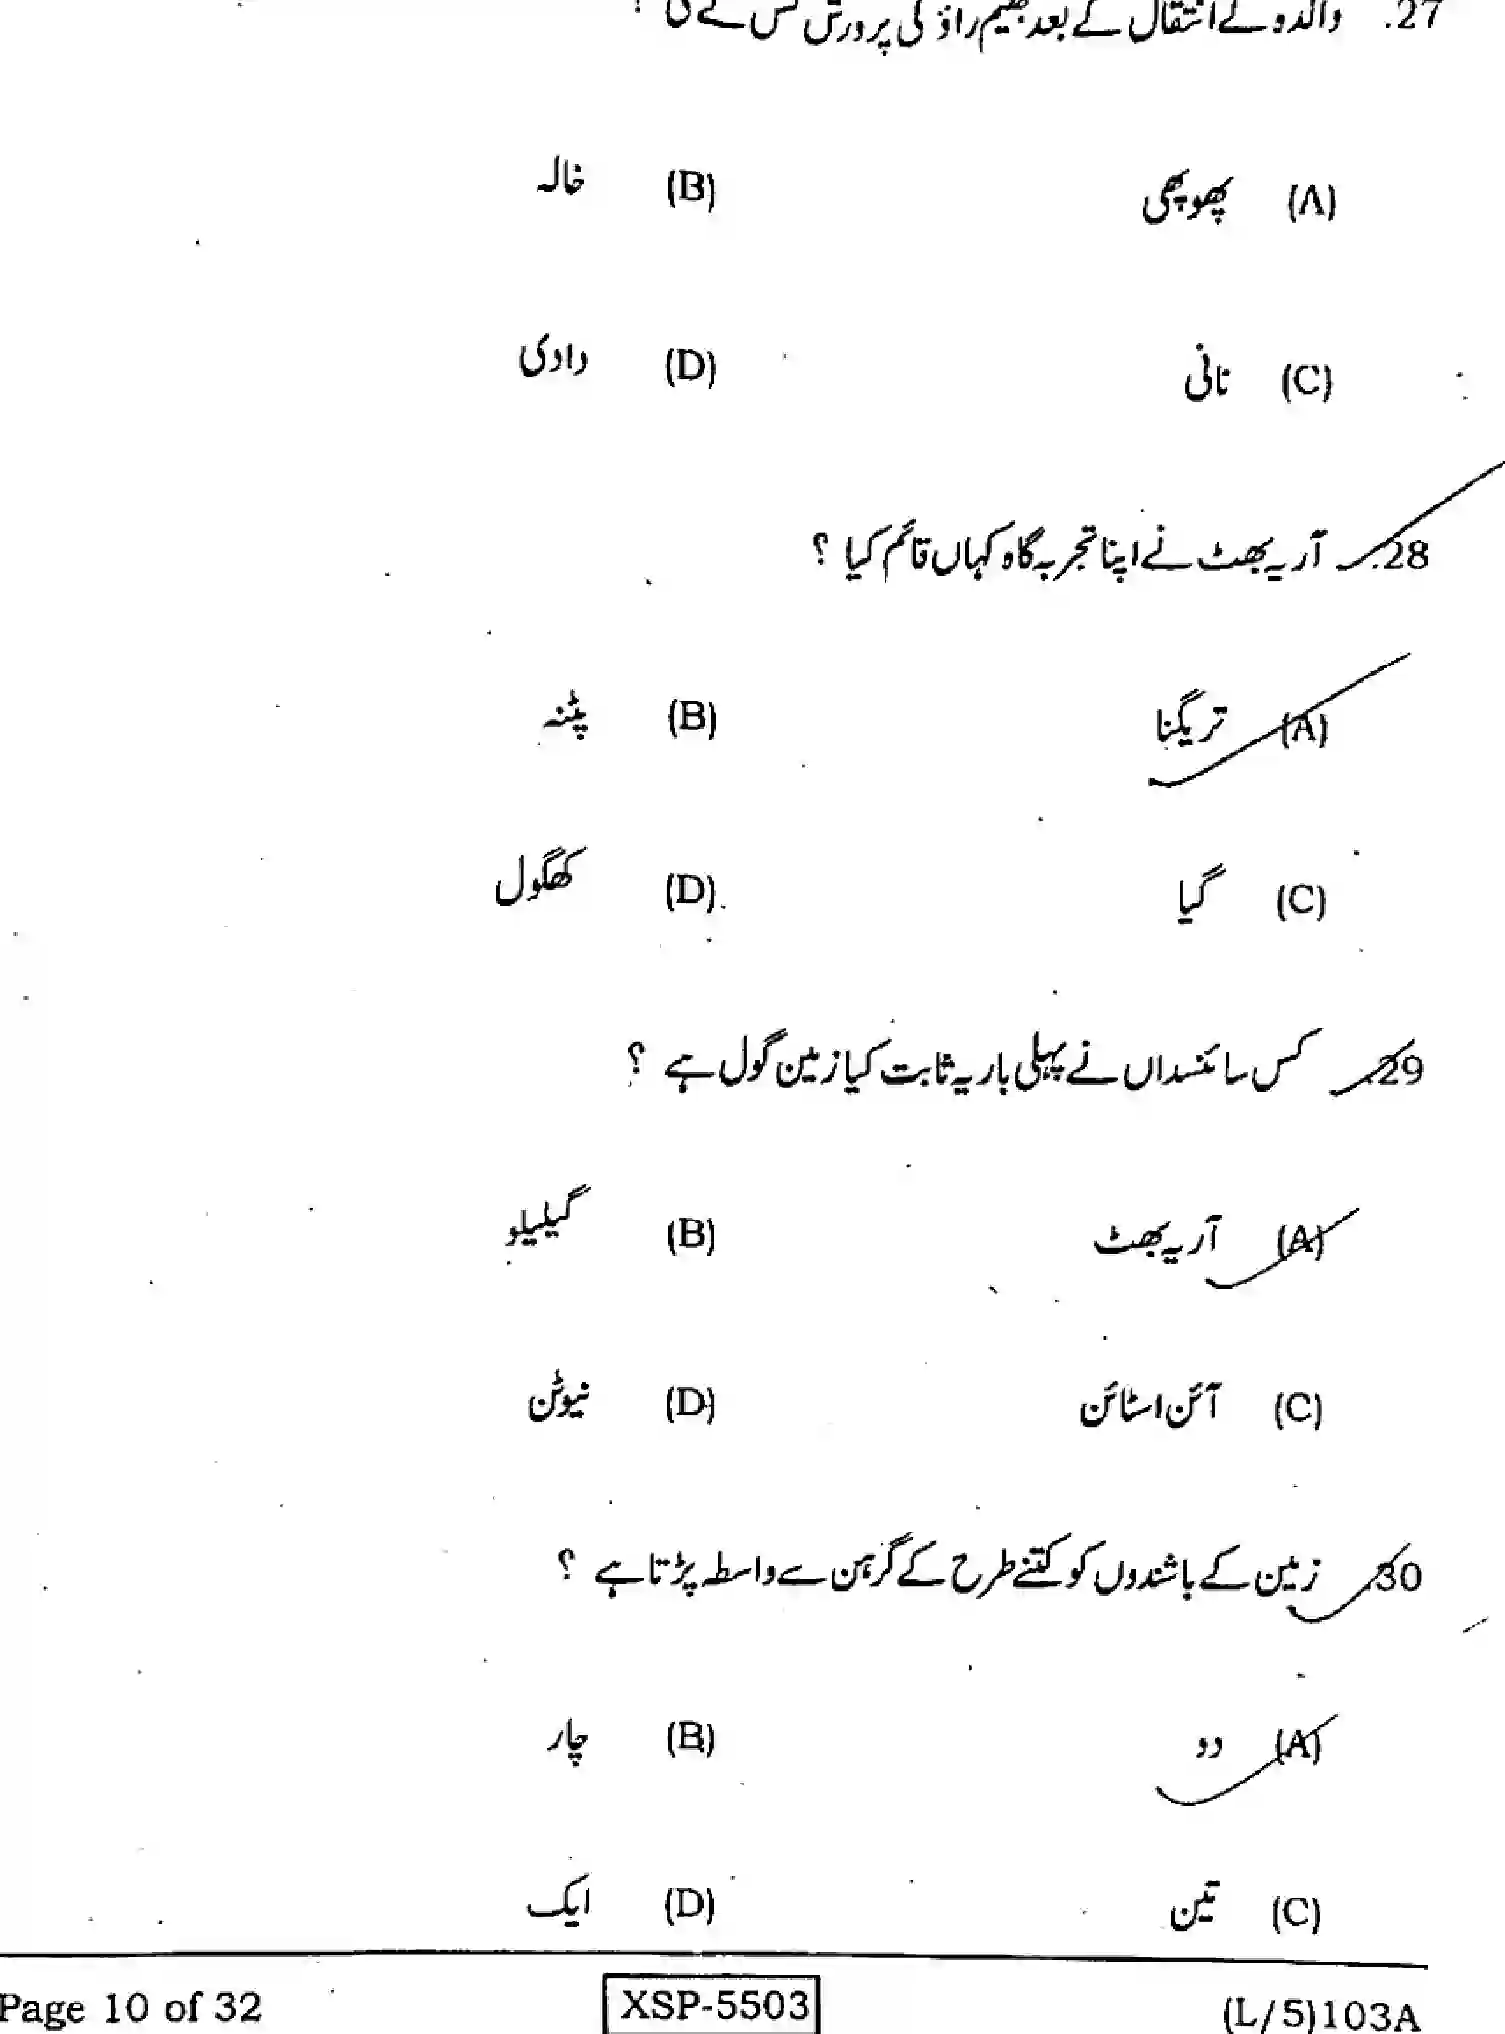 27. والدہ کے انتقال کے بعد بھیم راؤ کی پرورش کس نے کی ؟
(A) پھوپھی (B) خالہ
(C) نانی (D) دادی
28. آریہ بھٹ نے اپنا تجربہ گاہ کہاں قائم کیا ؟
(A) تریگنا (B) پٹنہ
(C) گیا (D) کھگول
29. کس سائنسداں نے پہلی بار یہ ثابت کیا زمین گول ہے ؟
(A) آریہ بھٹ (B) گیلیلو
(C) آئن اسٹائن (D) نیوٹن
30. زمین کے باشندوں کو کتنے طرح کے گرہن سے واسطہ پڑتا ہے ؟
(A) دو (B) چار
(C) تین (D) ایک
Page 10 of 32 XSP-5503 (L/5)103A